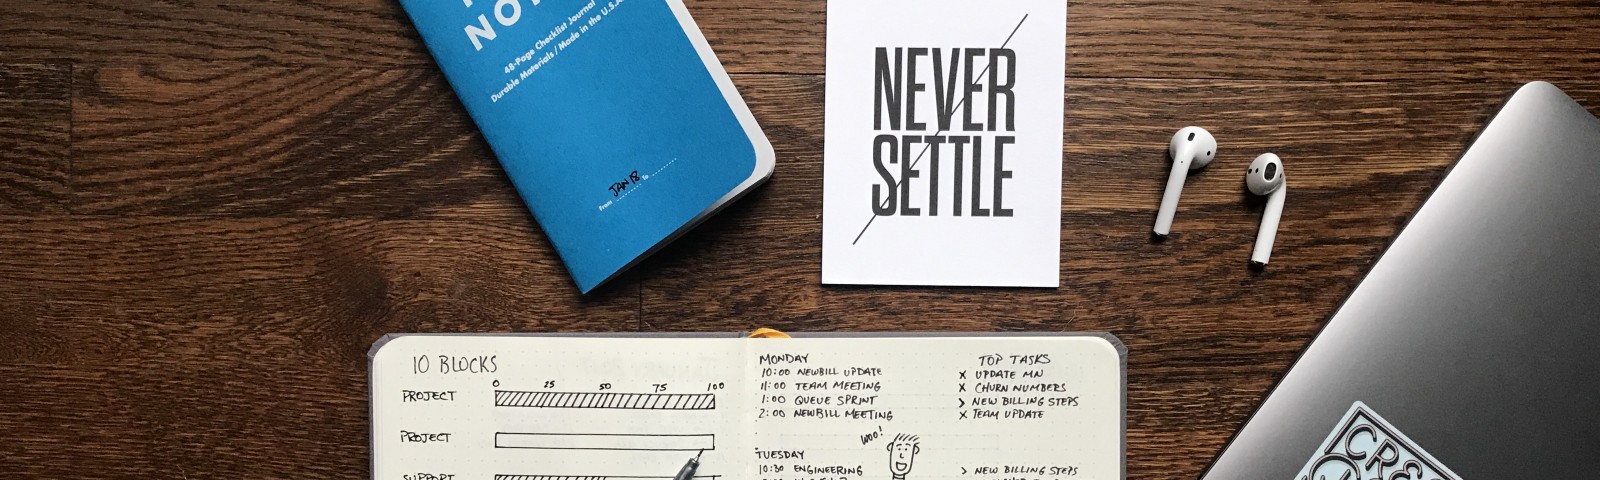 48-Page Checklist Journal
Durable Materials / Made in the U.S.A.
From JAN 18 to
NEVER
SETTLE
10 BLOCKS
0 25 50 75 100
PROJECT
PROJECT
SUPPORT
MONDAY
10:00 NEWBILL UPDATE
11:00 TEAM MEETING
1:00 QUEUE SPRINT
2:00 NEWBILL MEETING
WOO!
TUESDAY
10:30 ENGINEERING
TOP TASKS
X UPDATE MN
X CHURN NUMBERS
> NEW BILLING STEPS
X TEAM UPDATE
> NEW BILLING STEPS